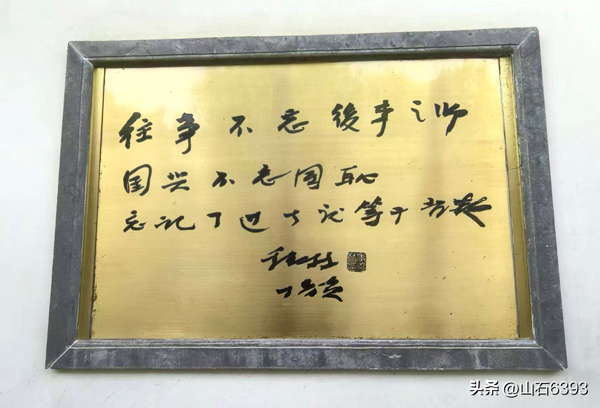 往事不忘後事之师
国兴不忘国耻
忘记了过去就等于背叛
头条 @山石6393